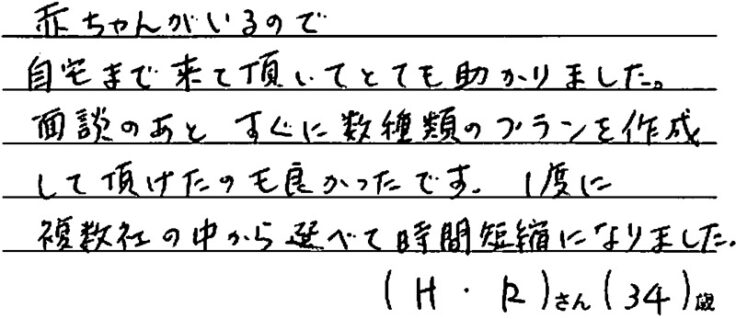 赤ちゃんがいるので
自宅まで来て頂いてとても助かりました。
面談のあと すぐに数種類のプランを作成
して頂けたのも良かったです。1度に
複数社の中から選べて時間短縮になりました。
(H・R)さん(34)歳